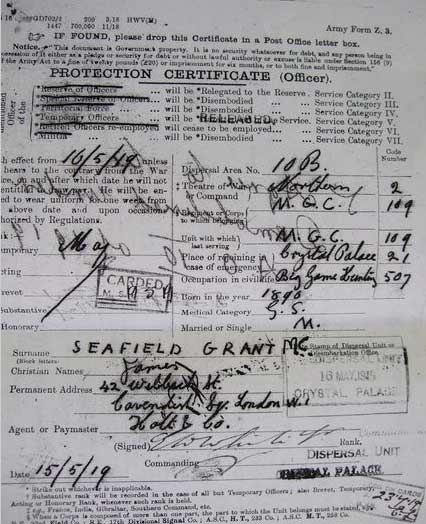 GD702/2 200 3,18 HWV(M)
1447 700,000 11/18
Army Form Z. 3.
IF FOUND, please drop this Certificate in a Post Office letter box.
Notice.—"This document is Government property. It is no security whatever for debt, and any person being in
possession of it either as a pledge or security for debt or without lawful authority or excuse is liable under Section 156 (9)
of the Army Act to a fine of twenty pounds (£20) or imprisonment for six months, or to both fine and imprisonment."
PROTECTION CERTIFICATE (Officer).
Reserve of Officers ... will be *Relegated to the Reserve. Service Category II.
Special Reserve of Officers ... will be *Disembodied Service Category III.
Territorial Force ... will be *Disembodied Service Category IV.
Temporary Officers ... will be RELEASED Service Category V.
Retired Officers re-employed will cease to be employed... Service Category VI.
Militia ... will be *Disembodied Service Category VII.
Officer of the
h effect from 16/5/19 unless
hears to the contrary from the War
ce, on and after which date he will not
entitled to
. He will be en-
d to wear uniform for one week from
above date and upon occasions
horized by Regulations.
Code Number
Dispersal Area No. 10 B.
‡Theatre of War or Command Northern 2
Regiment or Corps to which belonging M. G. C. 109
Unit with which last serving M. G. C. 109
Place of rejoining in case of emergency Crystal Palace 21
Occupation in civil life Big Game Hunting 507
Born in the year
Medical Category
Married or Single M.
mporary
ting
revet
Substantive
Honorary
CARDED
Surname SEAFIELD GRANT MC
(Block letters)
Christian Names James
Permanent Address 42 Welbeck St.
Cavendish Sq. London W.1
Agent or Paymaster Holt & Co.
Stamp of Dispersal Unit or
Disembarkation Office.
DISPERSAL UNIT
16 MAY 1919
CRYSTAL PALACE
(Signed)
Rank.
Commanding
DISPERSAL UNIT
CRYSTAL PALACE.
Date 15/5/19
* Strike out whichever is inapplicable.
† Substantive rank will be recorded in the case of all but Temporary Officers; also Brevet, Temporary,
Acting or Honorary Rank, whenever such rank is held.
‡ e.g., France, India, Gibraltar, Southern Command, etc.
§ When a Corps is composed of more than one part, the part to which the Unit belongs must be stated,
Field Co.; R.E., 17th Divisional Signal Co.; A.S.C., H.T., 233 Co.; A.S.C., M.T.,